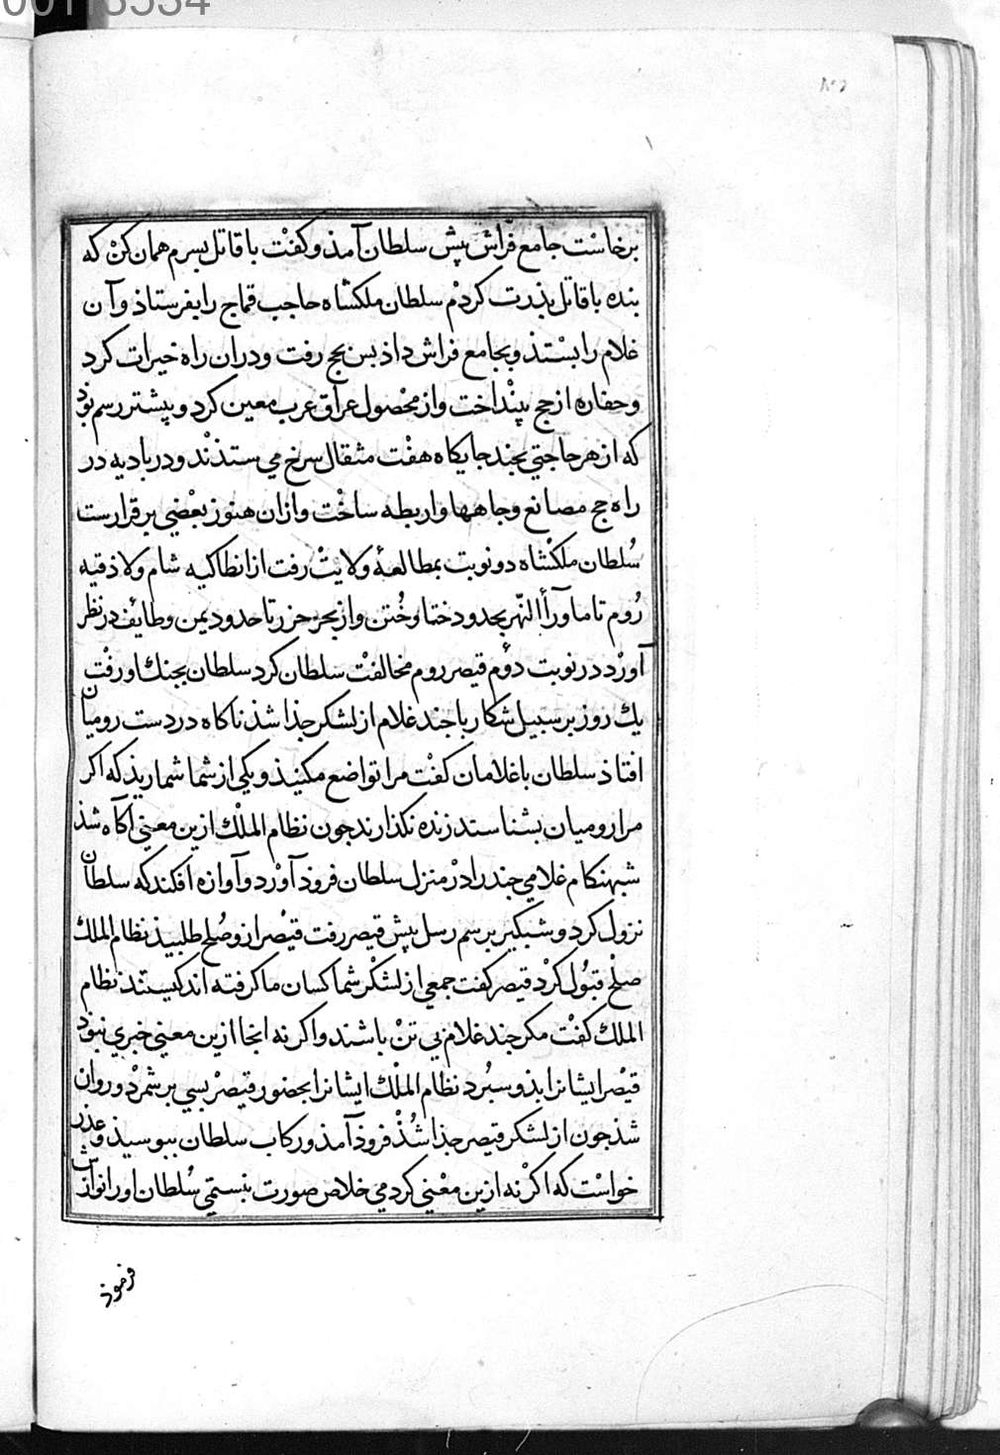 برخاست جامع فراش پش سلطان آمذ و كفت با قاتل بسرم همان كن كه
بنده با قاتل بذرت كردم سلطان ملكشاه حاجب قماج را بفرستاذ و آن
غلام را بستذ و بجامع فراش داذ بس بحج رفت و دران راه خيرات كرد
و حفاره از حج بينداخت و از محصول عراق عرب معين كرد و پيشتر رسم بوذ
كه از هر حاجتي بجند جايكاه هفت مثقال سرخ مي ستذند و در باديه در
راه حج مصانع و جاهها و اربطه ساخت و ازان هنوز بعضي بر قرارست
سلطان ملكشاه دو نوبت بمطالعهٔ ولايت رفت از انطاكيه شام و لاذقيه
روم تا ماورأ النهر بحدود ختا و ختن و از بحر خزر تا حدود يمن و طايف در نظر
آورد در نوبت دوم قيصر روم مخالفت سلطان كرد سلطان بجنك او رفت
يك روز بر سبيل شكار با جند غلام از لشكر جذا شذ ناكاه در دست روميان
افتاذ سلطان با غلامان كفت مرا تواضع مكنيذ و يكي از شما شماريذ كه اكر
مرا روميان بشناسند زنده نكذارند جون نظام الملك ازين معني آكاه شذ
شبهنكام غلامي جند را در منزل سلطان فروذ آورد و آوازه افكند كه سلطان
نزول كرد و شبكير برسم رسل پيش قيصر رفت قيصر ازو صلح طلبيذ نظام الملك
صلح قبول كرد قيصر كفت جمعي از لشكر شما كسان ما كرفته اند كيستند نظام
الملك كفت مكر جند غلام بي تن باشند و اكر نه انجا ازين معني خبري نبوذ
قيصر ايشانرا بذو سبرد نظام الملك ايشانرا بحضور قيصر بسي بر شمرد و روان
شذ جون از لشكر قيصر جذا شذ فروذ آمذ و ركاب سلطان ببوسيذ و عذر
خواست كه اكر نه ازين معني كردمي خلاص صورت نبستي سلطان او را نوازش
فرموذ